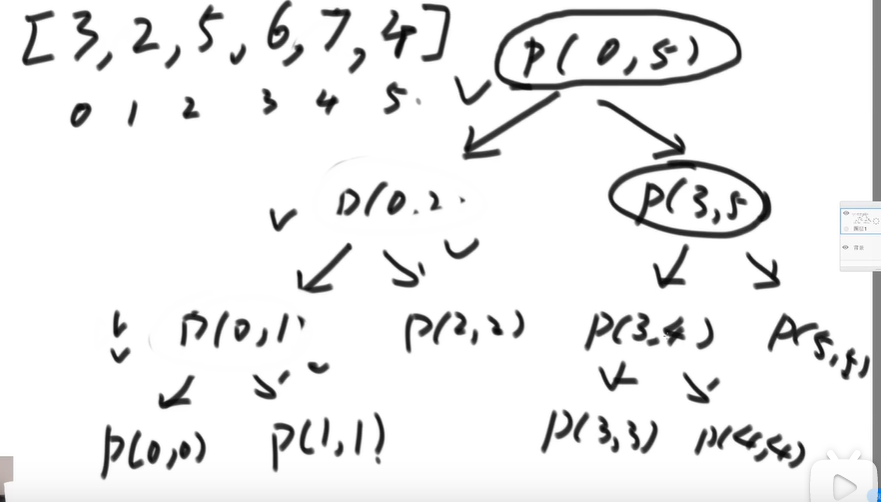 [3, 2, 5, 6, 7, 4] p(0,5)
0 1 2 3 4 5
p(0,2 p(3,5)
p(0,1) p(2,2) p(3,4) p(5,5)
p(0,0) p(1,1) p(3,3) p(4,4)